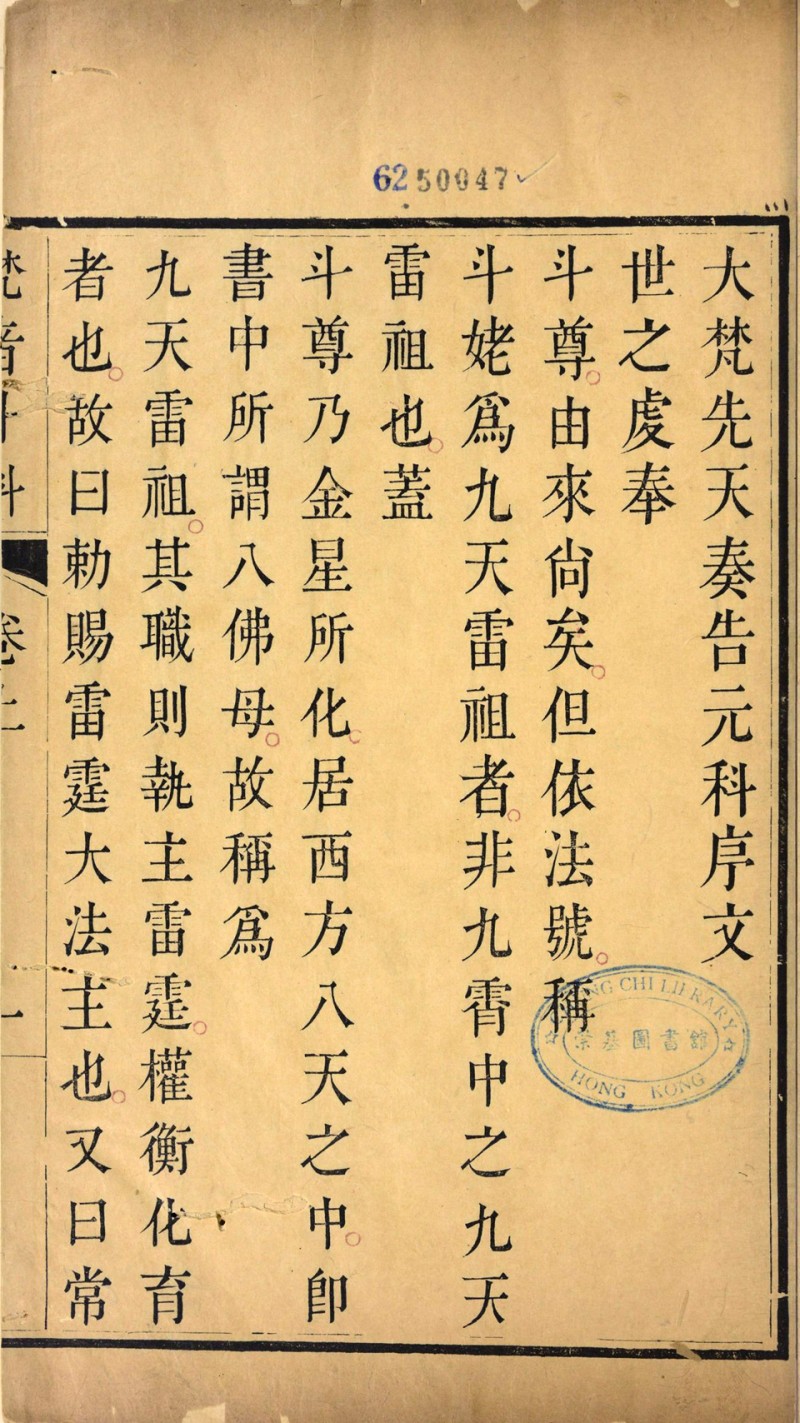 6250047
大梵先天奏告元科序文
世之虔奉
斗尊由來尙矣但依法號稱
斗姥爲九天雷祖者非九霄中之九天
雷祖也蓋
斗尊乃金星所化居西方八天之中卽
書中所謂八佛母故稱爲
九天雷祖其職則執主雷霆權衡化育
者也故曰勅賜雷霆大法主也又曰常
梵音斗科 卷上 一
CHI LIBRARY
崇基圖書館
HONG KONG